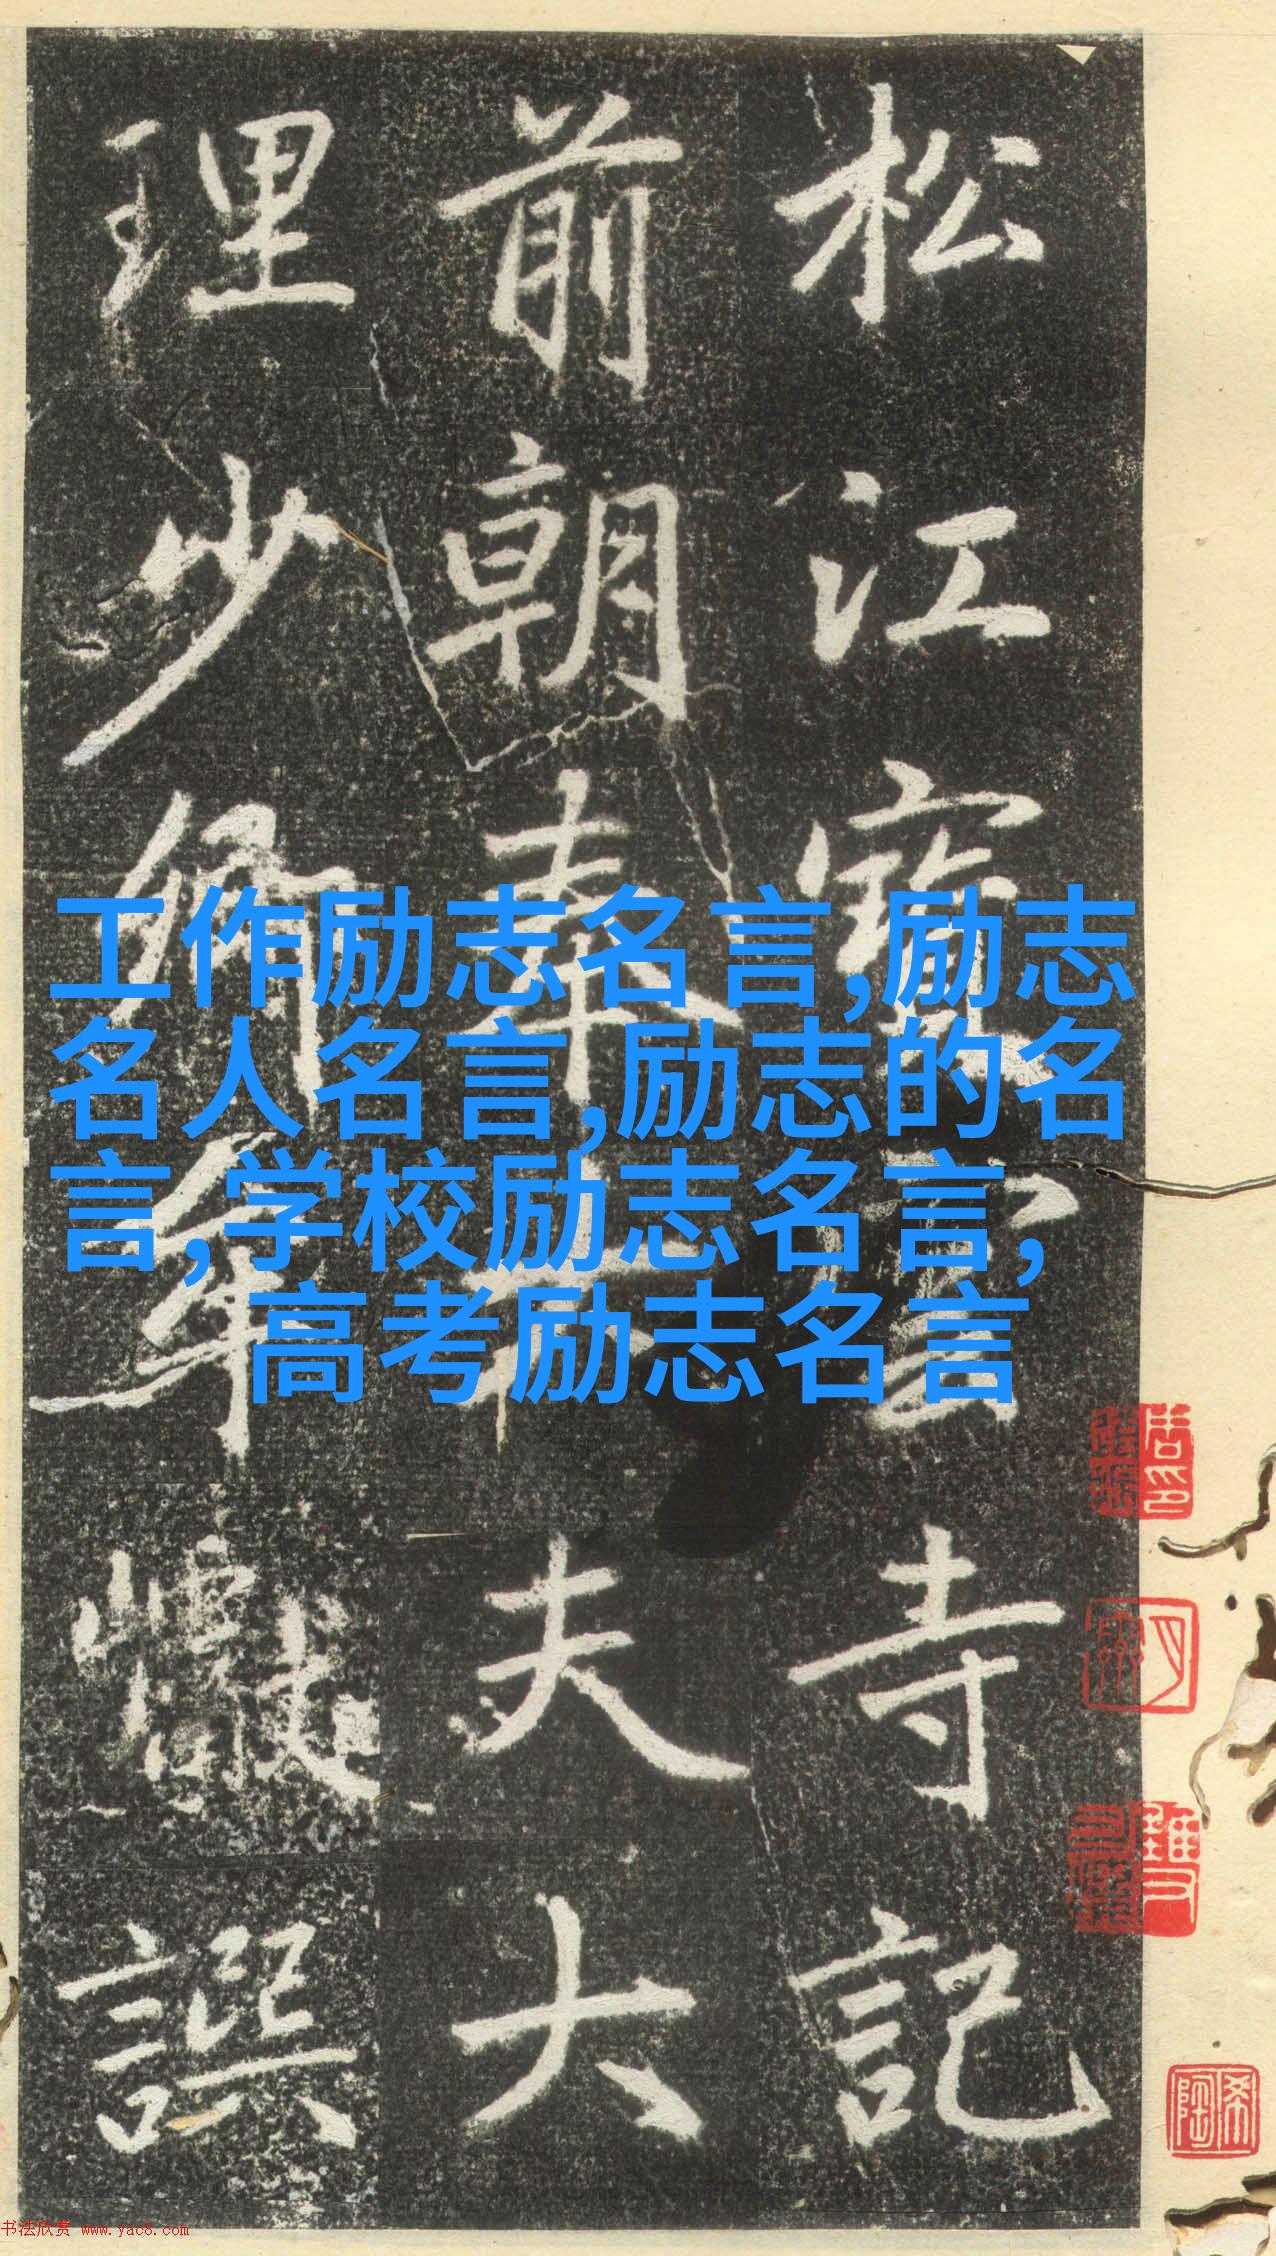 松江寶雲寺記
前朝奉
夫大
理少卿
譔
工作励志名言,励志
名人名言,励志的名
言,学校励志名言,
高考励志名言
书法欣赏 www.yac8.com